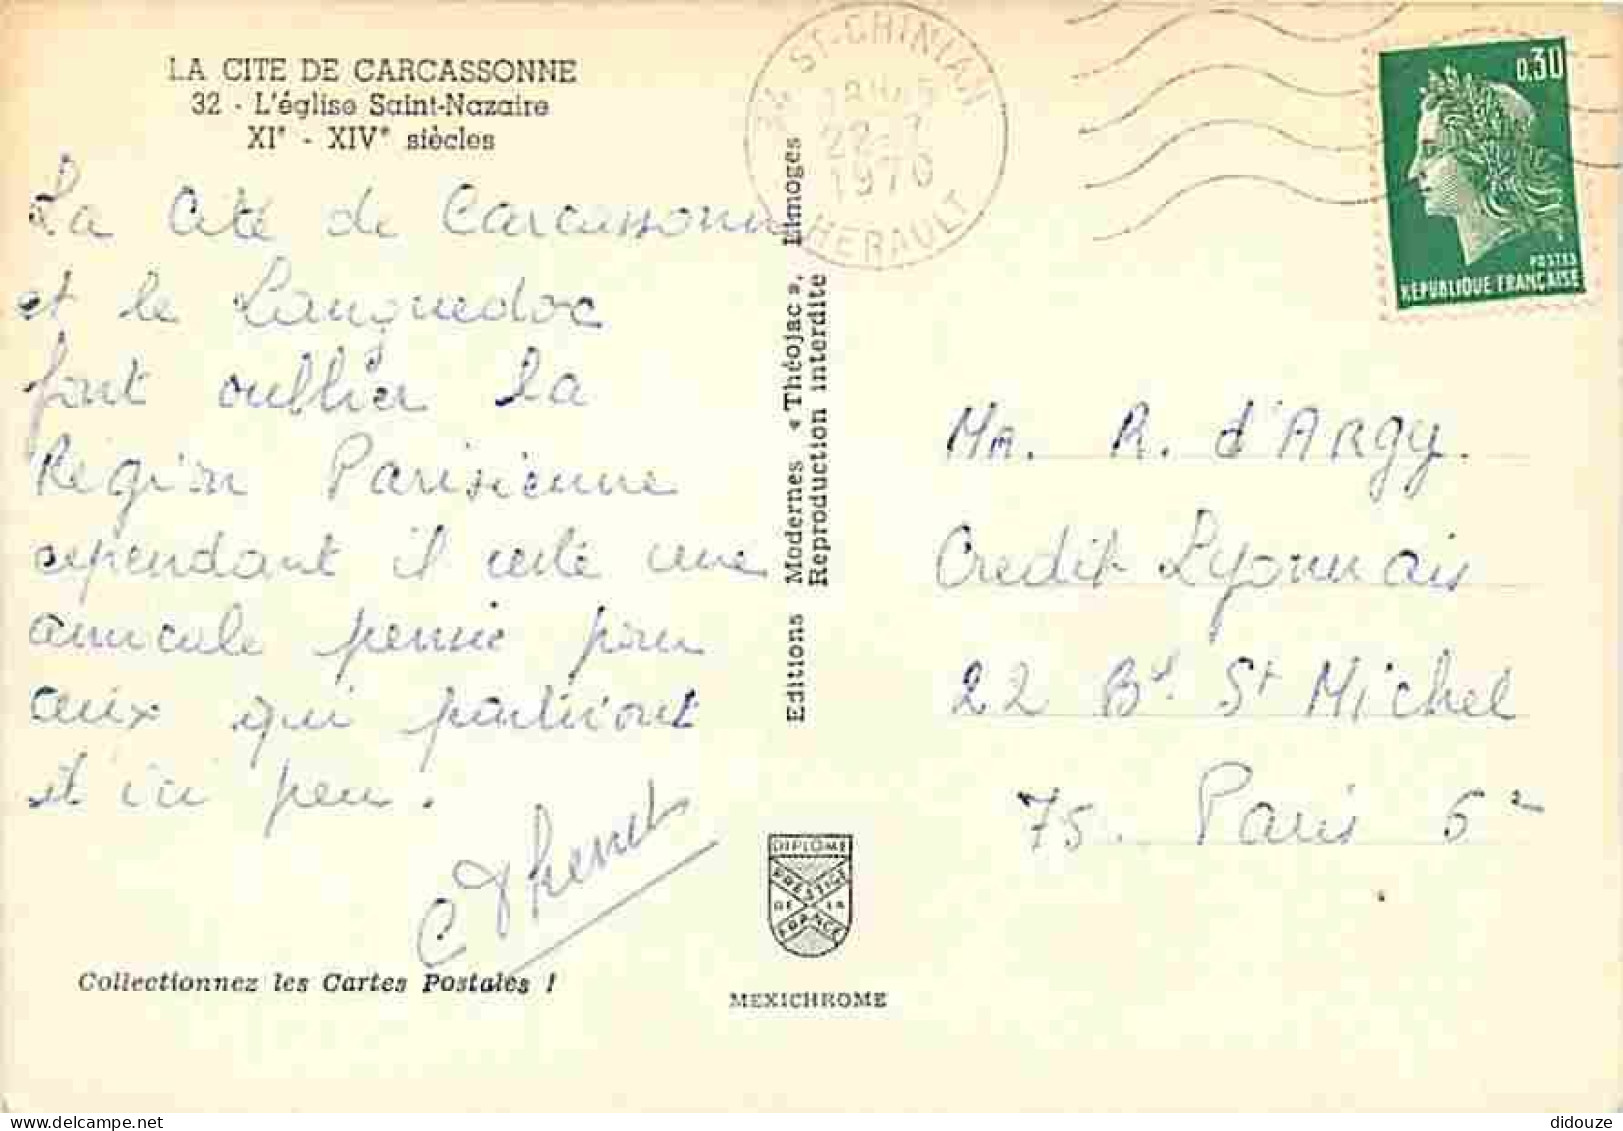 LA CITE DE CARCASSONNE
32 - L'église Saint-Nazaire
XIe - XIVe siècles
La Cité de Carcassonne
et le Languedoc
font oublier la
Région Parisienne
cependant il reste une
amicale pensée pour
ceux qui partiront
d'ici peu.
Collectionnez les Cartes Postales !
Editions Modernes « Théojac », Limoges
Reproduction interdite
DIPLOME
PRESTIGE
DE LA
FRANCE
MEXICHROME
34 ST-CHINIAN
22-7
1970
HERAULT
0,30
POSTES
REPUBLIQUE FRANÇAISE
Mr. R. d'Argy.
Credit Lyonnais
22 Bd St Michel
75. Paris 6e
didouze